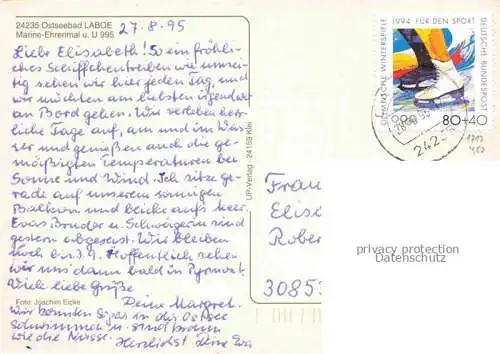 24235 Ostseebad LABOE
Marine-Ehrenmal u. U 995
27.8.95
Liebe Elisabeth! So ein fröhli-
ches Schiffchentreiben wie umsei-
tig sehen wir hier jeden Tag, und
wir möchten am liebsten irgendwo
an Bord gehen. Wir verleben herr-
liche Tage auf, am und im Was-
ser und genießen auch die ge-
mäßigten Temperaturen bei
Sonne und Wind. Ich sitze ge-
rade auf unserem sonnigen
Balkon und blicke aufs Meer.
Evas Bruder u. Schwägerin sind
gestern abgereist. Wir bleiben
noch bis 3.9. Hoffentlich sehen
wir uns dann bald in Pyrmont.
Viele liebe Grüße
Deine Margret.
Wir konnten sogar in der Ostsee
schwimmen u. sind braun
wie die Nüsse. Herzlichst Deine Eva
Foto: Joachim Eicke
UP-Verlag · 24159 Kiel
OLYMPISCHE WINTERSPIELE
1994 FÜR DEN SPORT
DEUTSCHE BUNDESPOST
80+40
2423
Frau
Elise
Rober
30853
privacy protection
Datenschutz